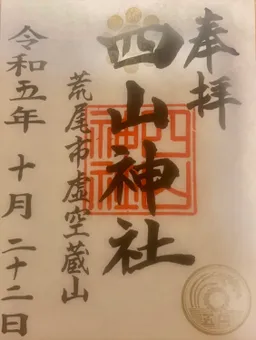 奉拝
四山神社
荒尾市虚空蔵山
令和五年 十月 二十二日
四山神社